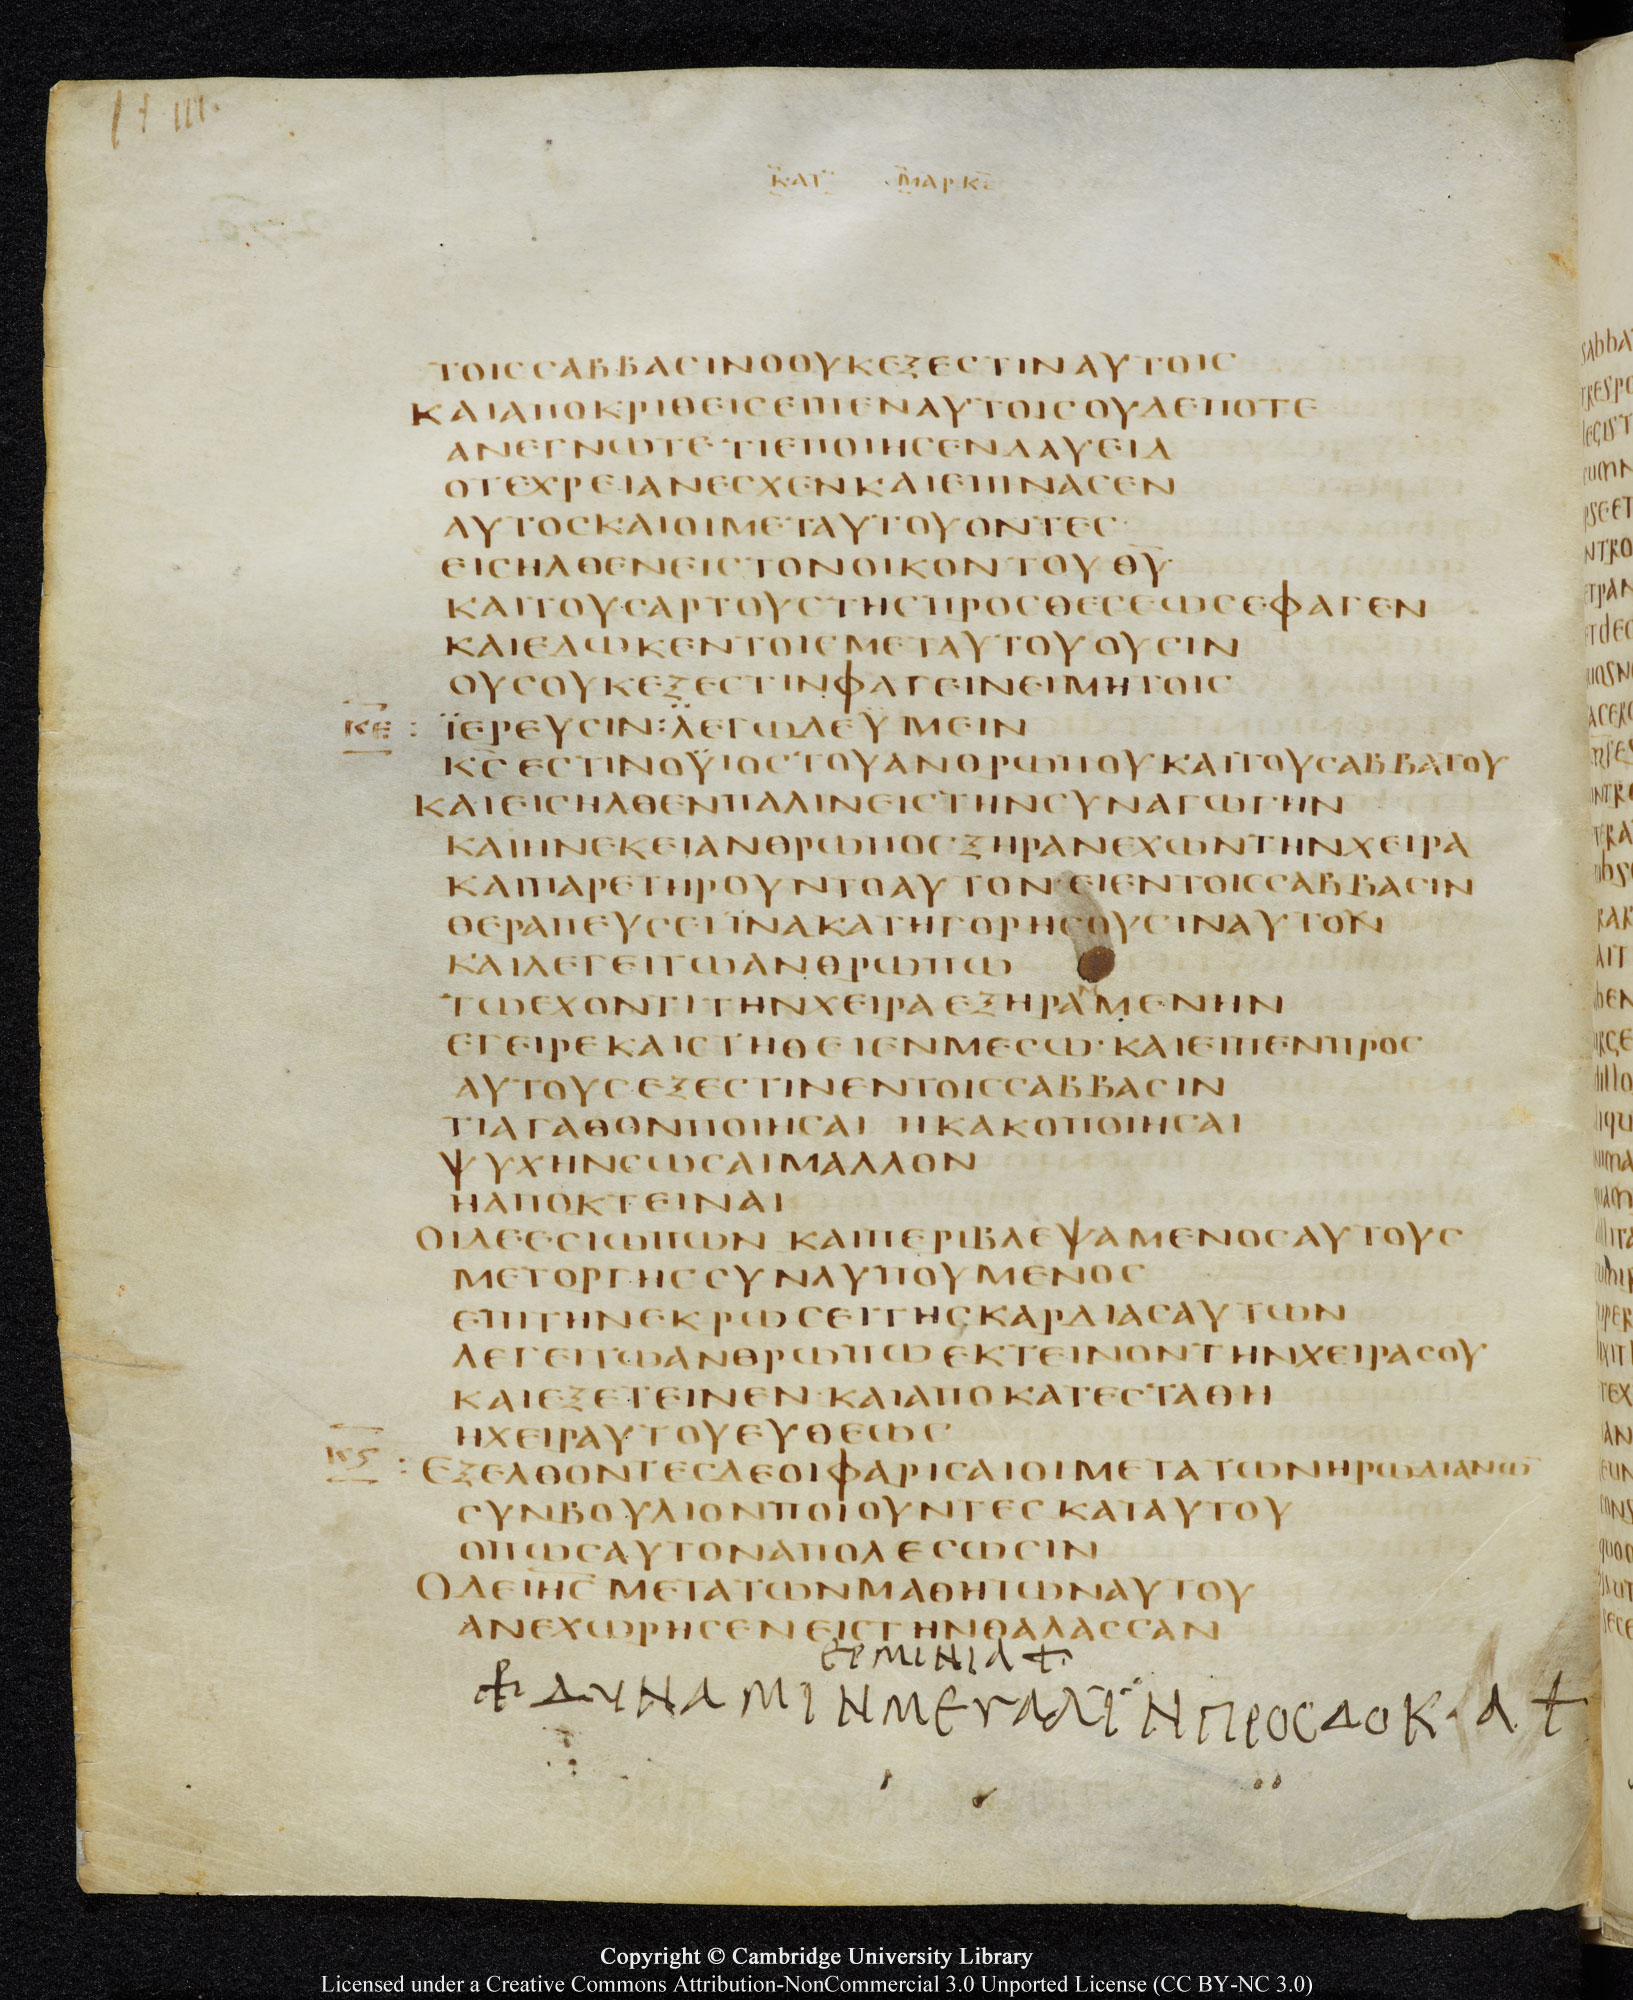 ΚΑΤ ΜΑΡΚ
ΤΟΙCCΑΒΒΑCΙΝΟΟΥΚΕΞΕCΤΙΝΑΥΤΟΙC
ΚΑΙΑΠΟΚΡΙΘΕΙCΕΙΠΕΝΑΥΤΟΙCΟΥΔΕΠΟΤΕ
ΑΝΕΓΝΩΤΕ ΤΙΕΠΟΙΗCΕΝΔΑΥΕΙΔ
ΟΤΕΧΡΕΙΑΝΕCΧΕΝΚΑΙΕΠΙΝΑCΕΝ
ΑΥΤΟCΚΑΙΟΙΜΕΤΑΥΤΟΥΟΝΤΕC
ΕΙCΗΛΘΕΝΕΙCΤΟΝΟΙΚΟΝΤΟΥ ΘΥ
ΚΑΙΤΟΥCΑΡΤΟΥCΤΗCΠΡΟCΘΕCΕΩCΕΦΑΓΕΝ
ΚΑΙΕΔΩΚΕΝΤΟΙCΜΕΤΑΥΤΟΥΟΥCΙΝ
ΟΥCΟΥΚΕΞΕCΤΙΝΦΑΓΕΙΝΕΙΜΗΤΟΙC
ΚΕ : ΪΕΡΕΥCΙΝ:ΛΕΓΩΔΕΫΜΕΙΝ
ΚC ΕCΤΙΝΟΫΙΟCΤΟΥΑΝΘΡΩΠΟΥΚΑΙΤΟΥCΑΒΒΑΤΟΥ
ΚΑΙΕΙCΗΛΘΕΝΠΑΛΙΝΕΙCΤΗΝCΥΝΑΓΩΓΗΝ
ΚΑΙΗΝΕΚΕΙΑΝΘΡΩΠΟCΞΗΡΑΝΕΧΩΝΤΗΝΧΕΙΡΑ
ΚΑΙΠΑΡΕΤΗΡΟΥΝΤΟΑΥΤΟΝ·ΕΙΕΝΤΟΙCCΑΒΒΑCΙΝ
ΘΕΡΑΠΕΥCΕΙ ΪΝΑΚΑΤΗΓΟΡΗCΟΥCΙΝΑΥΤΟΝ
ΚΑΙΛΕΓΕΙΤΩΑΝΘΡΩΠΩ
ΤΩΕΧΟΝΤΙΤΗΝΧΕΙΡΑΕΞΗΡΑΜΕΝΗΝ
ΕΓΕΙΡΕΚΑΙCΤΗΘΕΙΕΝΜΕCΩ·ΚΑΙΕΙΠΕΝΠΡΟC
ΑΥΤΟΥC·ΕΞΕCΤΙΝΕΝΤΟΙCCΑΒΒΑCΙΝ
ΤΙΑΓΑΘΟΝΠΟΙΗCΑΙ ΗΚΑΚΟΠΟΙΗCΑΙ
ΨΥΧΗΝCΩCΑΙΜΑΛΛΟΝ
ΗΑΠΟΚΤΕΙΝΑΙ
ΟΙΔΕΕCΙΩΠΩΝ ΚΑΙΠΕΡΙΒΛΕΨΑΜΕΝΟCΑΥΤΟΥC
ΜΕΤΟΡΓΗCCΥΝΛΥΠΟΥΜΕΝΟC
ΕΠΙΤΗΝΕΚΡΩCΕΙΤΗCΚΑΡΔΙΑCΑΥΤΩΝ
ΛΕΓΕΙΤΩΑΝΘΡΩΠΩ ΕΚΤΕΙΝΟΝΤΗΝΧΕΙΡΑCΟΥ
ΚΑΙΕΞΕΤΕΙΝΕΝ·ΚΑΙΑΠΟΚΑΤΕCΤΑΘΗ
ΗΧΕΙΡΑΥΤΟΥΕΥΘΕΩC
ΚϚ : ΕΞΕΛΘΟΝΤΕCΔΕΟΙΦΑΡΙCΑΙΟΙΜΕΤΑΤΩΝΗΡΩΔΙΑΝΩ
CΥΝΒΟΥΛΙΟΝΠΟΙΟΥΝΤΕC ΚΑΤΑΥΤΟΥ
ΟΠΩCΑΥΤΟΝΑΠΟΛΕCΩCΙΝ
ΟΔΕΙΗC ΜΕΤΑΤΩΝΜΑΘΗΤΩΝΑΥΤΟΥ
ΑΝΕΧΩΡΗCΕΝΕΙCΤΗΝΘΑΛΑCCΑΝ
ΕΡΜΙΝΙΑ +
ΔΥΝΑΜΙΝ ΜΕΓΑΛΙΝ ΠΡΟCΔΟΚΑ +
Copyright © Cambridge University Library
Licensed under a Creative Commons Attribution-NonCommercial 3.0 Unported License (CC BY-NC 3.0)